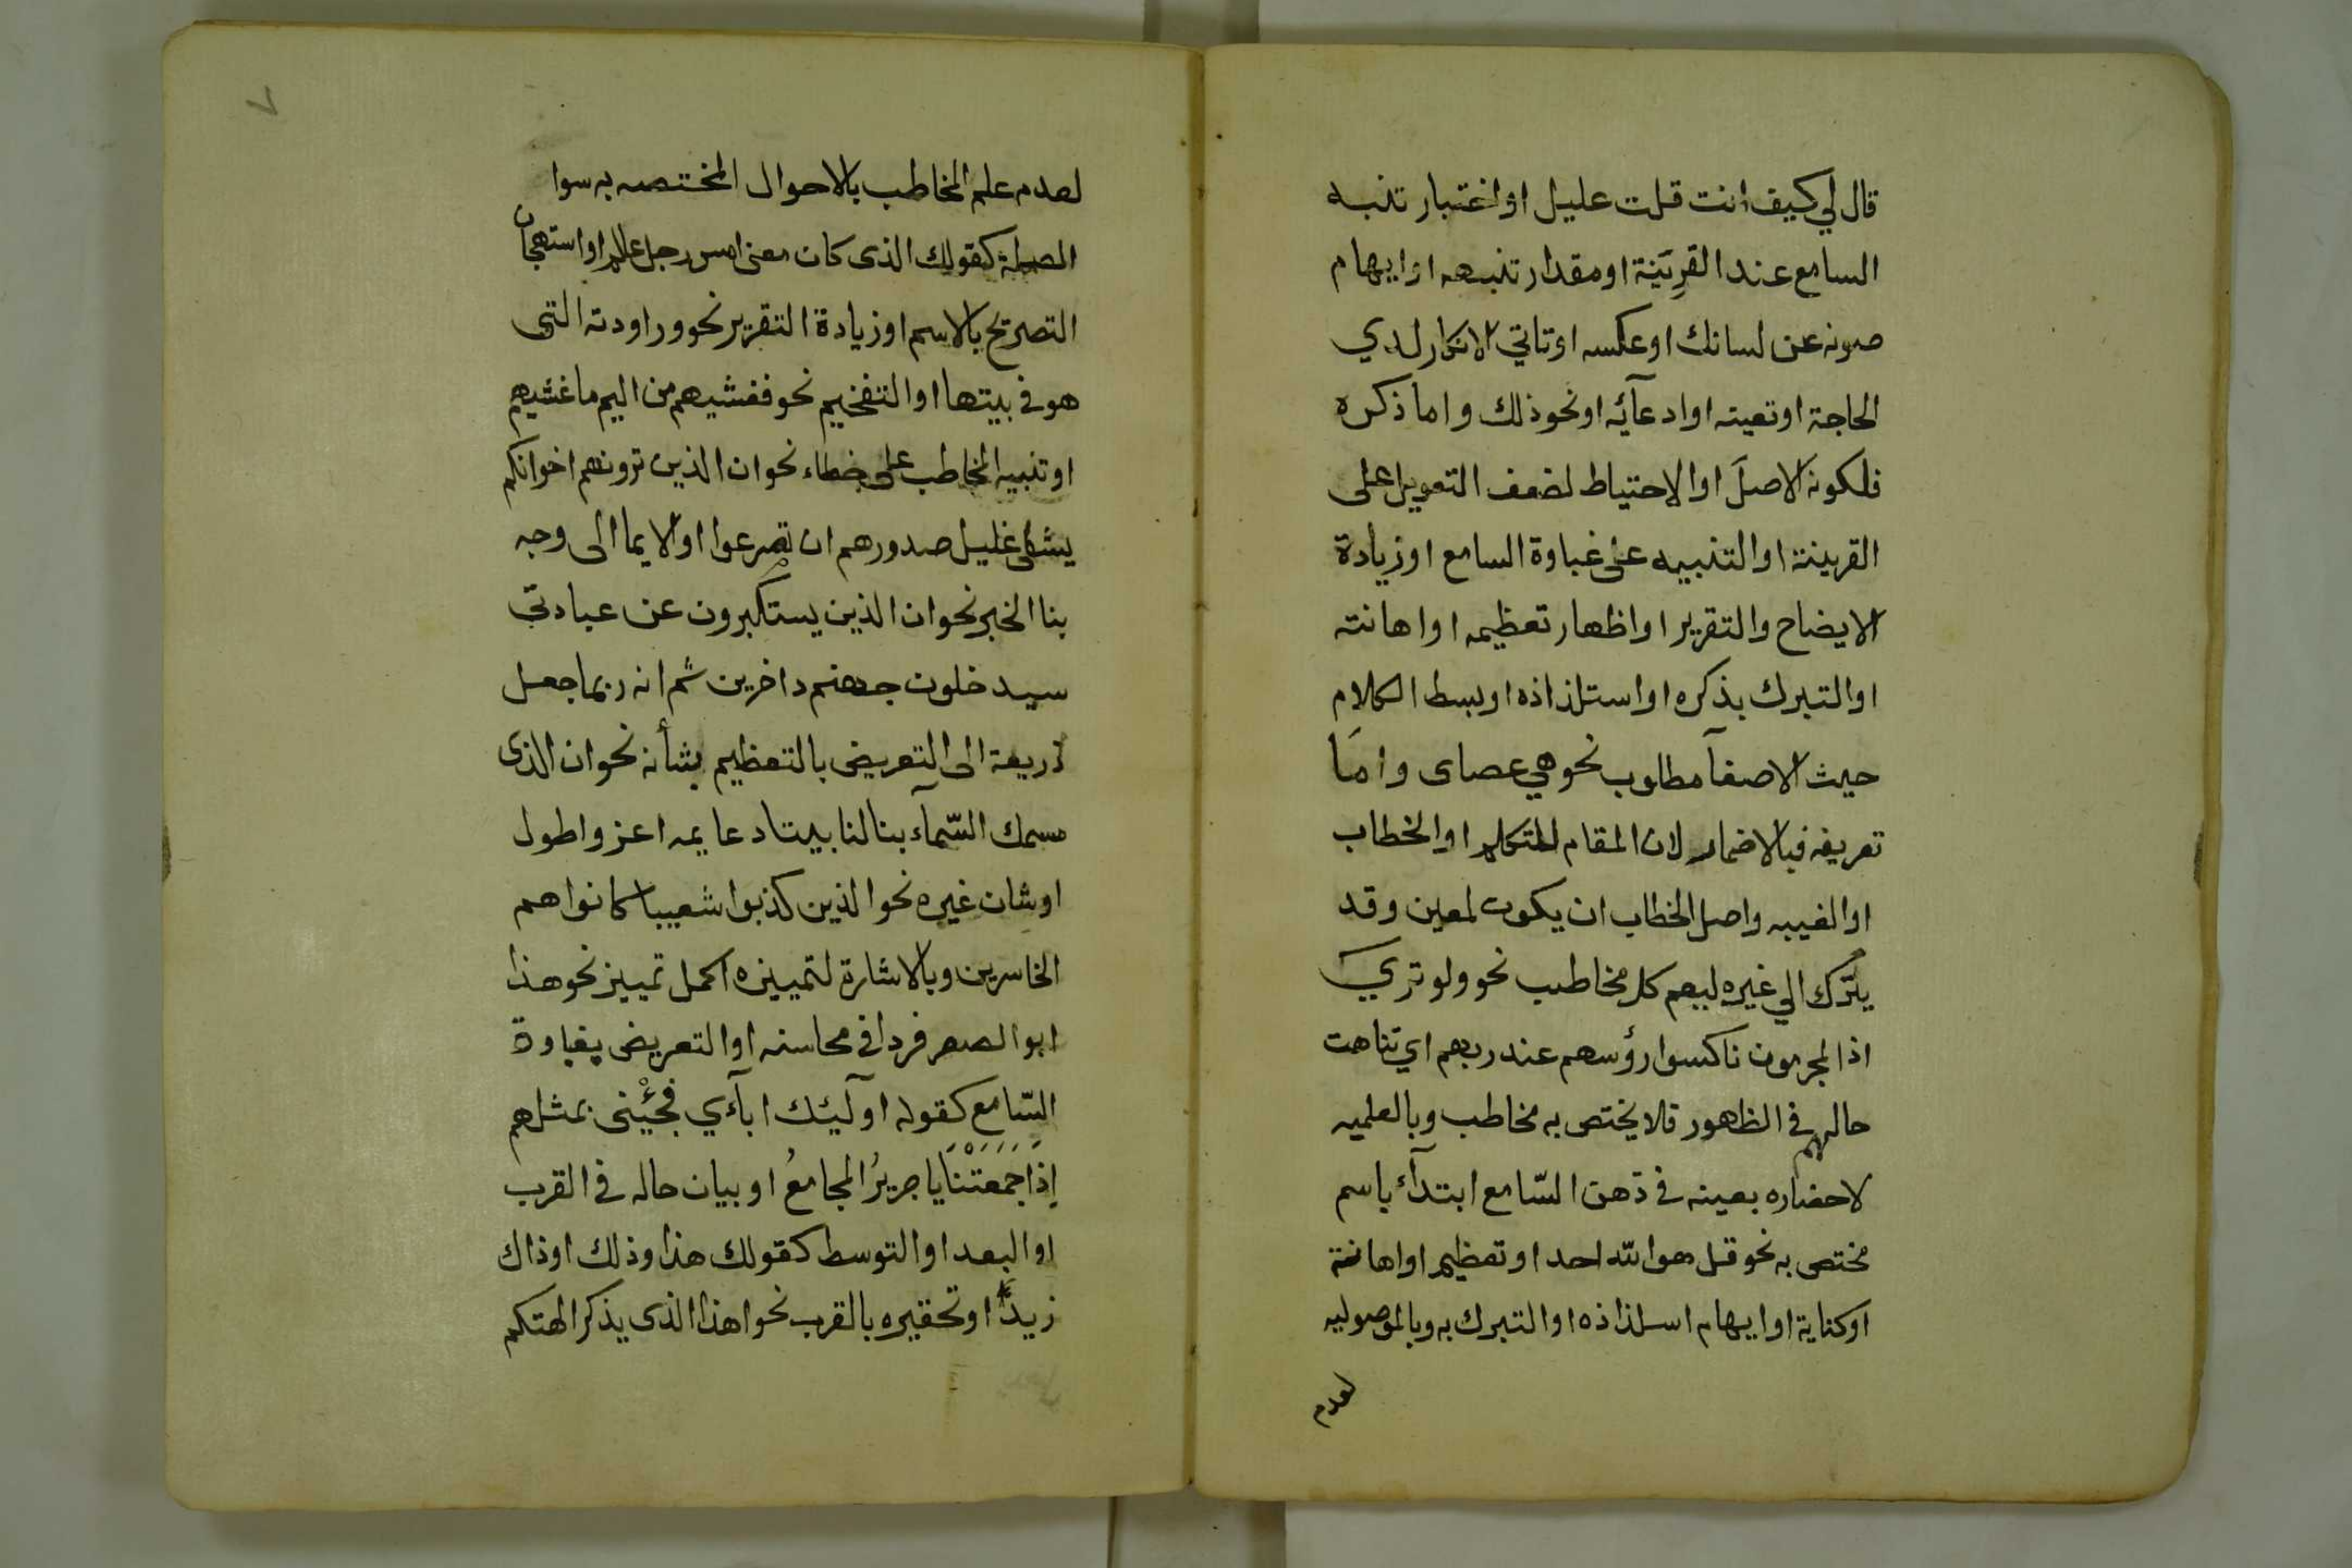 قال لي كيف انت قلت عليل او اختبار تنبه
السامع عند القرينة او مقدار تنبهه او ايهام
صونه عن لسانك او عكسه او تاتي الانكار لدي
الحاجة او تعينه او ادعآئه او نحو ذلك واما ذكره
فلكونه الاصل او الاحتياط لضعف التعويل على
القرينة او التنبيه على غباوة السامع او زيادة
الايضاح والتقرير او اظهار تعظيمه او اهانته
او التبرك بذكره او استلذاذه او بسط الكلام
حيث الاصغآ مطلوب نحو هي عصاى واما
تعريفه فبالاضمار لان المقام للمتكلم او الخطاب
او الغيبه واصل الخطاب ان يكون لمعين وقد
يترك الي غيره ليعم كل مخاطب نحو ولو تري
اذ المجرمون ناكسوا رؤسهم عند ربهم اي تناهت
حالهم في الظهور فلا يختص به مخاطب وبالعلميه
لاحضاره بعينه في ذهن السّامع ابتدآء باسم
مختص به نحو قل هو الله احد او تعظيم او اهانة
او كناية او ايهام استلذاذه او التبرك به وبالموصوليه
لعدم
٧
لعدم علم المخاطب بالاحوال المختصه به سوا
الصلة كقولك الذى كان معنى امس رجل عالم او استهجان
التصريح بالاسم او زيادة التقرير نحو وراودته التى
هو في بيتها او التفخيم نحو فغشيهم من اليم ما غشيهم
او تنبيه المخاطب على خطاء نحو ان الذين ترونهم اخوانكم
يشفى غليل صدورهم ان تصرعوا او الايما الى وجه
بنا الخبر نحو ان الذين يستكبرون عن عبادتى
سيدخلون جهنم داخرين ثم انه ربما جعل
ذريعة الى التعريض بالتعظيم بشأنه نحو ان الذى
سمك السّمآء بنا لنا بيتا دعايمه اعز واطول
او شان غيره نحو الذين كذبوا شعيبا كانوا هم
الخاسرين وبالاشارة لتمييزه اكمل تمييز نحو هذا
ابو الصقر فردا في محاسنه او التعريض بغباوة
السّامع كقوله اولٓئك ابآءي فجئني بمثلهم
إِذَا جَمَعَتْنَا يا جريرُ المجامعُ او بيان حاله في القرب
او البعد او التوسط كقولك هذا وذلك او ذاك
زيد او تحقيره بالقرب نحو اهذا الذى يذكر الهتكم